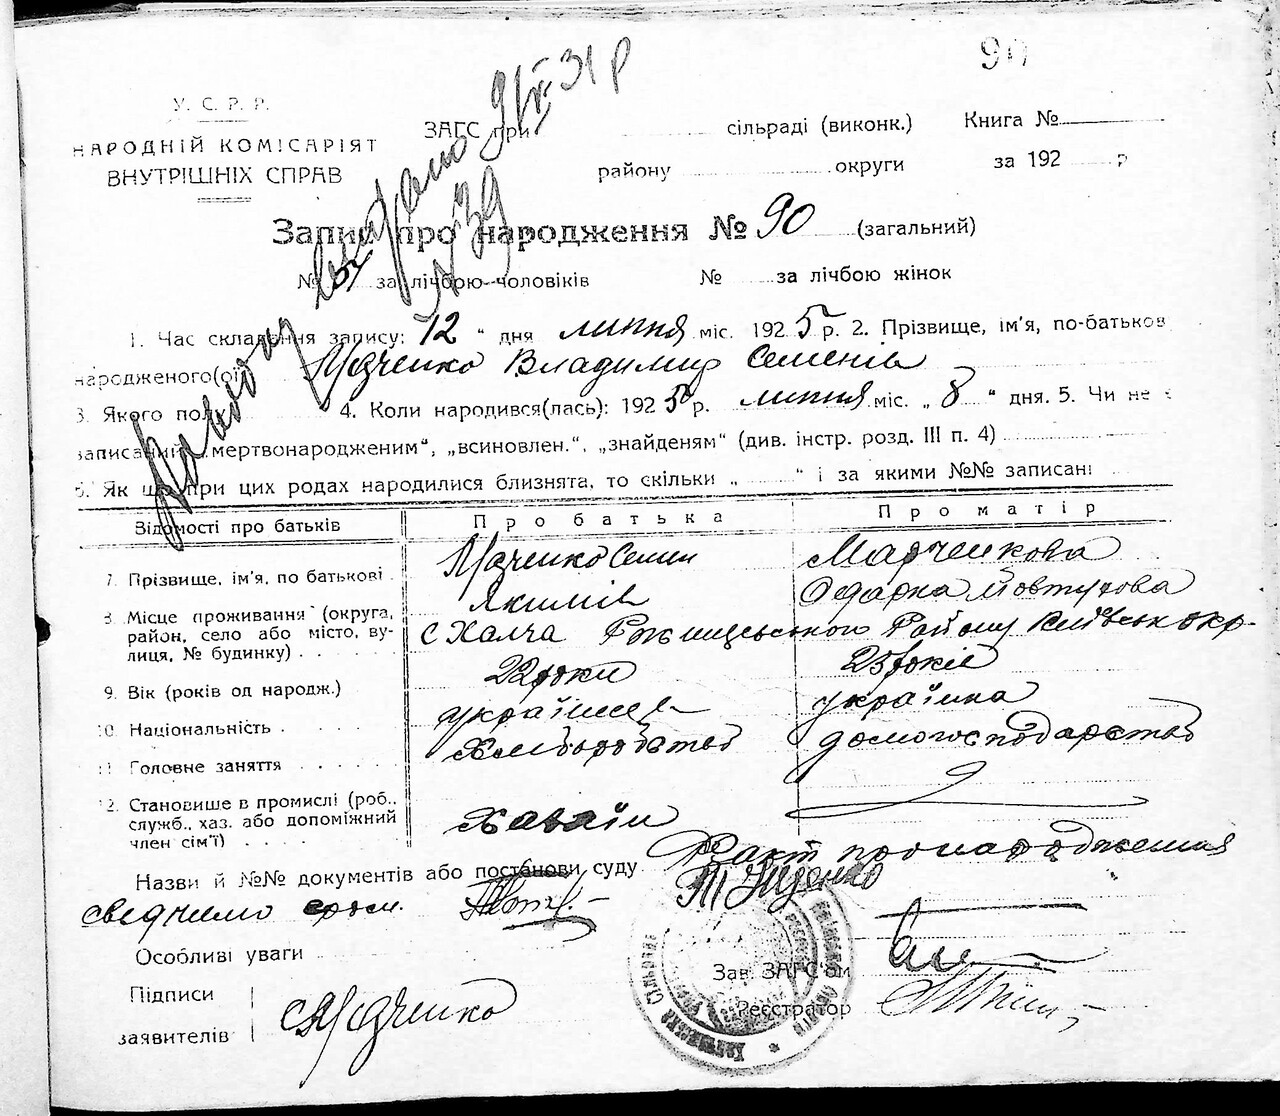 90
У. С. Р. Р.
НАРОДНІЙ КОМІСАРІЯТ
ВНУТРІШНІХ СПРАВ
ЗАГС при сільраді (виконк.) Книга №
району округи за 192 р
31р
№ 39
Запис про народження № 90 (загальний)
№ за лічбою чоловіків № за лічбою жінок
1. Час складення запису: 12 " дня липня міс. 1925 р. 2. Прізвище, ім'я, по-батьков
народженого(ої Владимир Семенів
3. Якого пол 4. Коли народився(лась): 1925 р. липня міс. „ 8 " дня. 5. Чи не є
записаний „мертвонародженим", „всиновлен.", „знайденям" (див. інстр. розд. III п. 4)
6. Як що при цих родах народилися близнята, то скільки „ " і за якими №№ записані
Відомості про батьків Про батька Про матір
7. Прізвище, ім'я, по батькові Семен Якимів Одарка
8. Місце проживання (округа, район, село або місто, вулиця, № будинку) с Халча Району Київськ окр.
9. Вік (років од народж.) 22 роки 25 років
10. Національність українець українка
11. Головне заняття Хліборобство домогосподарство
12. Становише в промислі (роб., служб., хаз. або допоміжний член сім'ї) Хазяїн
Назви й №№ документів або постанови суду Факт про народження
сведчимо
Особливі уваги
Підписи
заявителів
Зав. ЗАГС'ом
Реєстратор